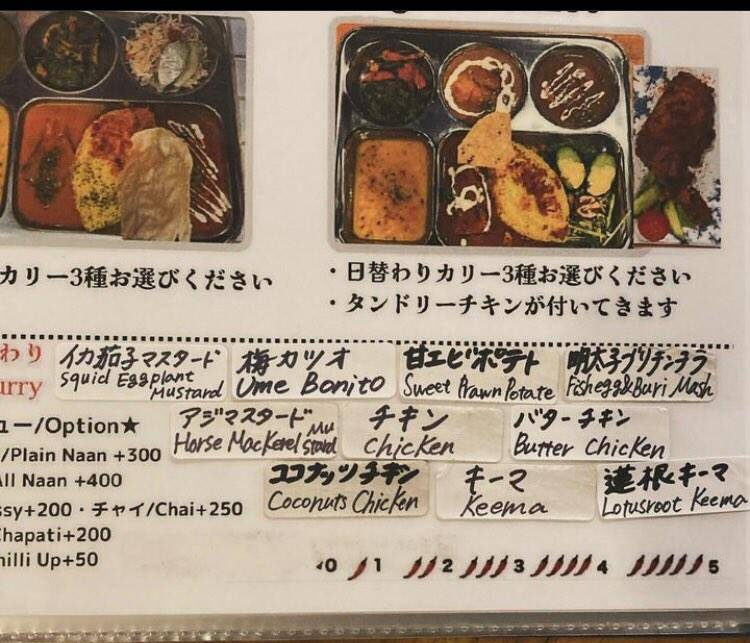 カリー3種お選びください
・日替わりカリー3種お選びください
・タンドリーチキンが付いてきます
わり
urry
イカ茄子マスタード
Squid Eggplant
Mustard
梅カツオ
Ume Bonito
甘エビポテト
Sweet Prawn Potate
明太子ブリチンチラ
Fishegg&Buri Mash
アジマスタード
Horse Mackerel Mu
stard
チキン
Chicken
バターチキン
Butter Chicken
ココナッツチキン
Coconuts Chicken
キーマ
Keema
蓮根キーマ
Lotusroot Keema
ュー/Option★
/Plain Naan +300
All Naan +400
ssy+200・チャイ/Chai+250
Chapati+200
hilli Up+50
0 1 2 3 4 5